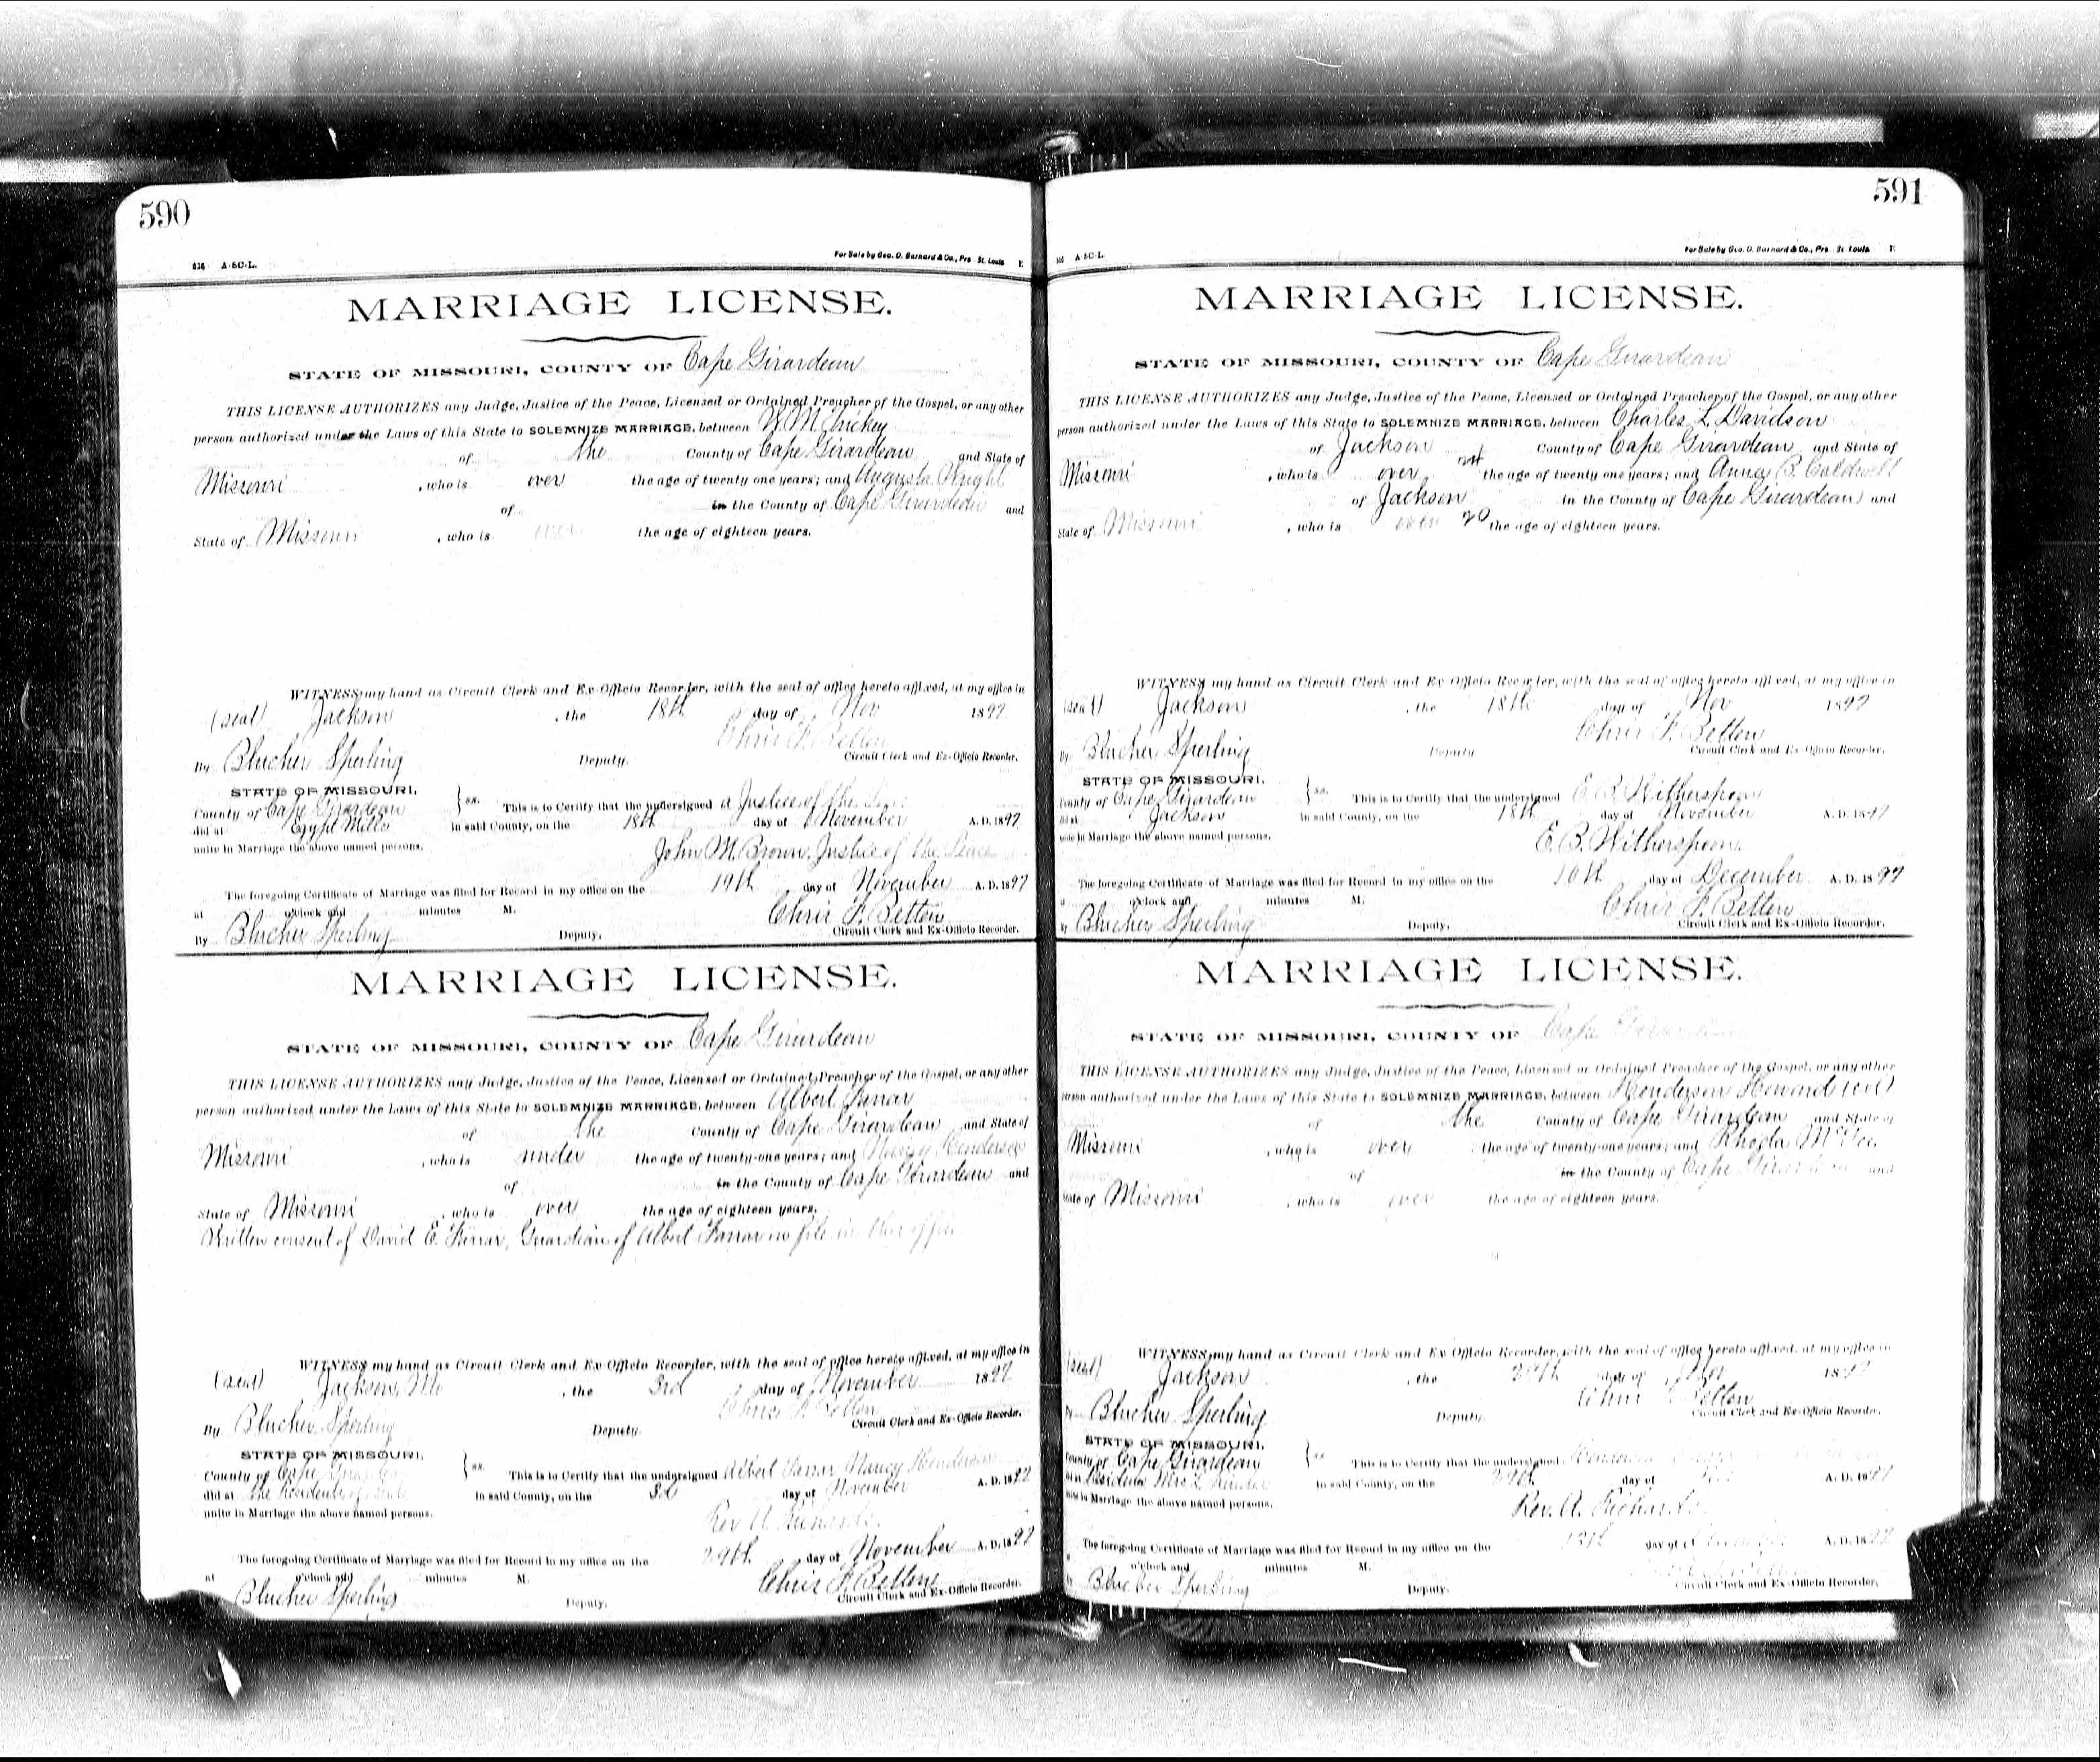 590
636 A-5C-L. For Sale by Geo. D. Barnard & Co., Prs St. Louis E
MARRIAGE LICENSE.
STATE OF MISSOURI, COUNTY OF Cape Girardeau
THIS LICENSE AUTHORIZES any Judge, Justice of the Peace, Licensed or Ordained Preacher of the Gospel, or any other
person authorized under the Laws of this State to SOLEMNIZE MARRIAGE, between W. M.
of the County of Cape Girardeau and State of
Missouri , who is over the age of twenty one years; and Augusta
of in the County of Cape Girardeau and
State of Missouri , who is over the age of eighteen years.
WITNESS my hand as Circuit Clerk and Ex-Officio Recorder, with the seal of office hereto affixed, at my office in
(seal) Jackson , the 18th day of Nov 1897
Chris F. Betten
By Blucher Sperling Deputy. Circuit Clerk and Ex-Officio Recorder.
STATE OF MISSOURI,
County of Cape Girardeau } ss. This is to Certify that the undersigned a Justice of the Peace
did at Egypt Mills in said County, on the 18th day of November A. D. 1897
unite in Marriage the above named persons.
John M. Brown, Justice of the Peace
The foregoing Certificate of Marriage was filed for Record in my office on the 19th day of November A. D. 1897
at o'clock and minutes M. Chris F. Betten
By Blucher Sperling Deputy. Circuit Clerk and Ex-Officio Recorder.
MARRIAGE LICENSE.
STATE OF MISSOURI, COUNTY OF Cape Girardeau
THIS LICENSE AUTHORIZES any Judge, Justice of the Peace, Licensed or Ordained Preacher of the Gospel, or any other
person authorized under the Laws of this State to SOLEMNIZE MARRIAGE, between Albert Farrar
of the County of Cape Girardeau and State of
Missouri , who is under the age of twenty-one years; and Nancy Henderson
of in the County of Cape Girardeau and
State of Missouri , who is over the age of eighteen years.
Written consent of David E. Farrar, Guardian of Albert Farrar on file in this office
WITNESS my hand as Circuit Clerk and Ex-Officio Recorder, with the seal of office hereto affixed, at my office in
(seal) Jackson, Mo , the 3rd day of November 1897
Chris F. Betten
By Blucher Sperling Deputy. Circuit Clerk and Ex-Officio Recorder.
STATE OF MISSOURI,
County of Cape Girardeau } ss. This is to Certify that the undersigned Albert Farrar Nancy Henderson
did at the Residence of in said County, on the 3d day of November A. D. 1897
unite in Marriage the above named persons.
Rev A.
The foregoing Certificate of Marriage was filed for Record in my office on the 29th day of November A. D. 1897
at o'clock and minutes M. Chris F. Betten
Blucher Sperling Deputy. Circuit Clerk and Ex-Officio Recorder.
591
A-5C-L. For Sale by Geo. D. Barnard & Co., Prs St. Louis E
MARRIAGE LICENSE.
STATE OF MISSOURI, COUNTY OF Cape Girardeau
THIS LICENSE AUTHORIZES any Judge, Justice of the Peace, Licensed or Ordained Preacher of the Gospel, or any other
person authorized under the Laws of this State to SOLEMNIZE MARRIAGE, between Charles L. Davidson
of Jackson County of Cape Girardeau and State of
Missouri , who is over the age of twenty one years; and Anna B. Caldwell
of Jackson in the County of Cape Girardeau and
State of Missouri , who is over the age of eighteen years.
WITNESS my hand as Circuit Clerk and Ex-Officio Recorder, with the seal of office hereto affixed, at my office in
(seal) Jackson , the 18th day of Nov 1897
Chris F. Betten
By Blucher Sperling Deputy. Circuit Clerk and Ex-Officio Recorder.
STATE OF MISSOURI,
County of Cape Girardeau } ss. This is to Certify that the undersigned E. B. Witherspoon
did at Jackson in said County, on the 18th day of November A. D. 1897
unite in Marriage the above named persons.
E. B. Witherspoon
The foregoing Certificate of Marriage was filed for Record in my office on the 10th day of December A. D. 1897
o'clock and minutes M. Chris F. Betten
By Blucher Sperling Deputy. Circuit Clerk and Ex-Officio Recorder.
MARRIAGE LICENSE.
STATE OF MISSOURI, COUNTY OF Cape Girardeau
THIS LICENSE AUTHORIZES any Judge, Justice of the Peace, Licensed or Ordained Preacher of the Gospel, or any other
person authorized under the Laws of this State to SOLEMNIZE MARRIAGE, between Henderson Howard (col)
of the County of Cape Girardeau and State of
Missouri , who is over the age of twenty-one years; and Rhoda McGee
of in the County of Cape Girardeau and
State of Missouri , who is over the age of eighteen years.
WITNESS my hand as Circuit Clerk and Ex-Officio Recorder, with the seal of office hereto affixed, at my office in
(seal) Jackson , the day of Nov 1897
Chris F. Betten
Blucher Sperling Deputy. Circuit Clerk and Ex-Officio Recorder.
STATE OF MISSOURI,
County of Cape Girardeau } ss This is to Certify that the undersigned
Residence Mrs. in said County, on the day of A. D. 1897
unite in Marriage the above named persons.
Rev. A. Richards
The foregoing Certificate of Marriage was filed for Record in my office on the day of A. D. 1897
o'clock and minutes M.
Blucher Sperling Deputy. Circuit Clerk and Ex-Officio Recorder.